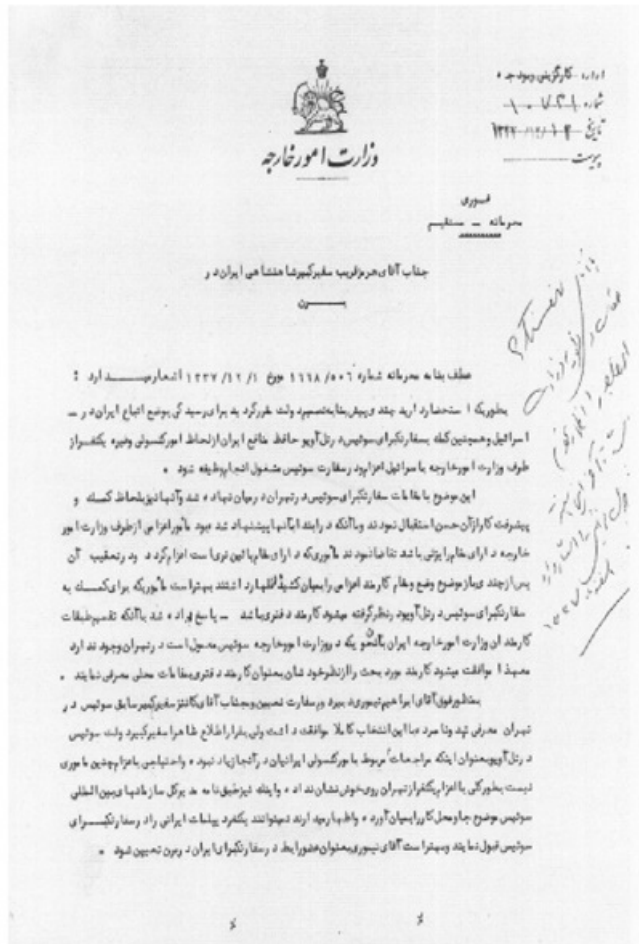 اداره کارگزینی وبودجه
شماره ۱۰۷۳۱
تاریخ ۱۳۳۷/۱۲/۱۴
پیوست
وزارت امور خارجه
فوری
محرمانه – مستقیم
جناب آقای هرمز قریب سفیرکبیر شاهنشاهی ایران در
برن
عطف بنامه محرمانه شماره ۱۶۶۸/۵۰۶ مورخ ۱۳۳۷/۱۲/۱ اشعار میدارد :
بطوریکه استحضار دارید چندی پیش بنابه تصمیم دولت مقرر گردید برای رسیدگی بوضع اتباع ایران در –
اسرائیل وهمچنین کمک بسفارتکبرای سوئیس در تل آویو حافظ منافع ایران ازلحاظ امورکنسولی وغیره یکنفر از
طرف وزارت امورخارجه باسرائیل اعزام ودر سفارت سوئیس مشغول انجام وظیفه شود .
این موضوع با مقامات سفارتکبرای سوئیس در تهران درمیان نهاده شد وآنها نیز بلحاظ کمک و
پیشرفت کار از آن حسن استقبال نمودند وباآنکه در ابتدا بآنها پیشنهاد شده بود مأمور اعزامی ازطرف وزارت امور
خارجه دارای مقام رایزنی باشد تقاضا نمودند مأموریکه دارای مقام پائین تری است اعزام گردد ودر تعقیب آن
پس ازچندی باز موضوع وضع ومقام کارمند اعزامی را بمیان کشیده اظهار داشتند بهتر است مأموریکه برای کمک به
سفارتکبرای سوئیس در تل آویو در نظر گرفته میشود کارمند دفتری باشد – پاسخ داده شد باآنکه تقسیم طبقات
کارمندان وزارت امورخارجه ایران بآنحوی که در وزارت امورخارجه سوئیس معمول است در تهران وجود ندارد
معهذا موافقت میشود کارمند مورد بحث را ازنظر خودشان بعنوان کارمند دفتری بمقامات محلی معرفی نمایند .
بمنظور فوق آقای ابراهیم تیموری دبیر دوم سفارت تعیین وبجناب آقای سفیرکبیر سابق سوئیس در
تهران معرفی شد ونامبرده بااین انتخاب کاملا موافقت داشت ولی بقرار اطلاع ظاهرا سفیرکبیر دولت سوئیس
در تل آویو بعنوان اینکه مراجعات مربوط بامور کنسولی ایرانیان در آنجا زیاد نبوده واحتیاجی باعزام چنین مأموری
نیست بطورکلی با اعزام یکنفر از تهران روی خوش نشان نداده واینک نیز طبق نامه مدیرکل سازمانهای بین المللی
سوئیس موضوع جا ومحل کار را بمیان آورده واظهار میدارند نمیتوانند یکنفر دیپلمات ایرانی را در سفارتکبرای
سوئیس قبول نمایند وبهتر است آقای تیموری بعنوان عضو رابط در سفارتکبرای ایران در برن تعیین شود .